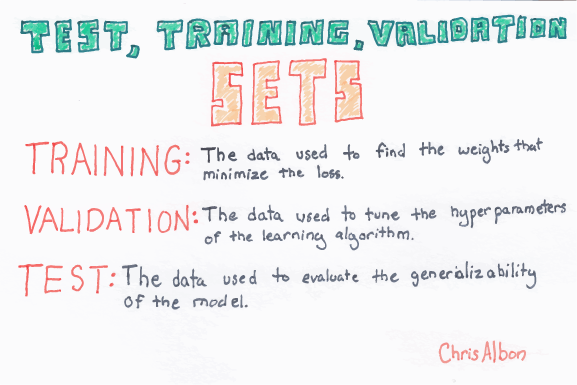 TEST, TRAINING, VALIDATION
SETS
TRAINING: The data used to find the weights that
minimize the loss.
VALIDATION: The data used to tune the hyperparameters
of the learning algorithm.
TEST: The data used to evaluate the generializability
of the model.
Chris Albon